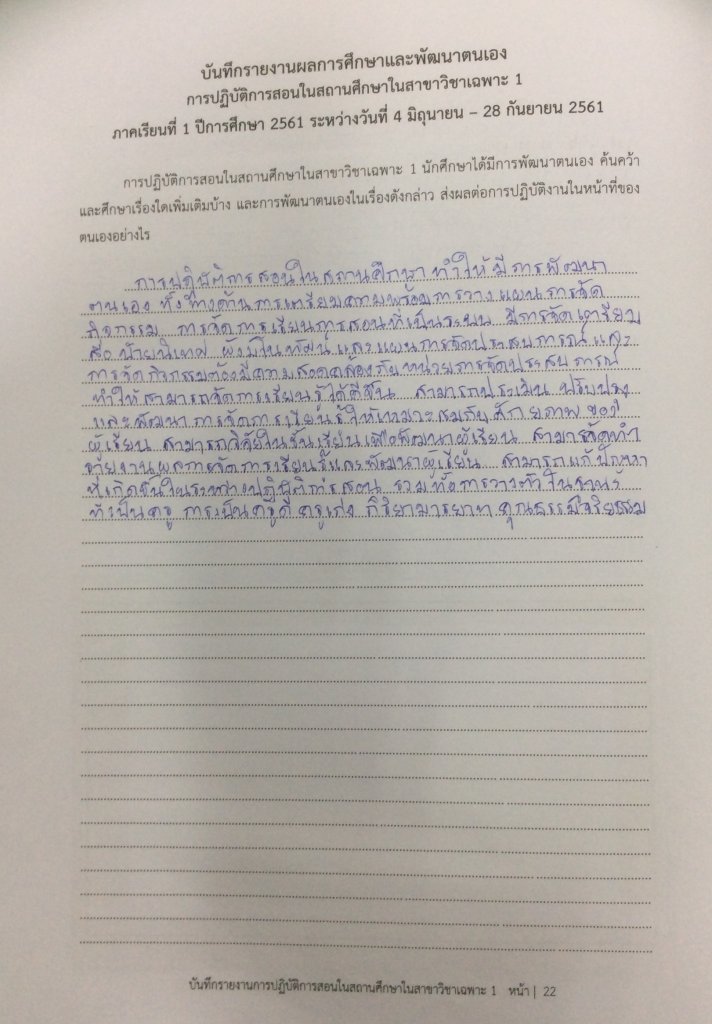 บันทึกรายงานผลการศึกษาและพัฒนาตนเอง
การปฏิบัติการสอนในสถานศึกษาในสาขาวิชาเฉพาะ 1
ภาคเรียนที่ 1 ปีการศึกษา 2561 ระหว่างวันที่ 4 มิถุนายน – 28 กันยายน 2561
การปฏิบัติการสอนในสถานศึกษาในสาขาวิชาเฉพาะ 1 นักศึกษาได้มีการพัฒนาตนเอง ค้นคว้า
และศึกษาเรื่องใดเพิ่มเติมบ้าง และการพัฒนาตนเองในเรื่องดังกล่าว ส่งผลต่อการปฏิบัติงานในหน้าที่ของ
ตนเองอย่างไร
การปฏิบัติการสอนในสถานศึกษา ทำให้มีการพัฒนา
ตนเอง ทั้งทางด้านการเตรียมความพร้อมการวางแผนการจัด
กิจกรรม การจัดการเรียนการสอนที่เป็นระบบ มีการจัดเตรียม
สื่อ ป้ายนิเทศ ผังมโนทัศน์ และแผนการจัดประสบการณ์ และ
การจัดกิจกรรมต้องมีความสอดคล้องกับหน่วยการจัดประสบการณ์
ทำให้สามารถจัดการเรียนรู้ได้ดีขึ้น สามารถประเมิน ปรับปรุง
และพัฒนาการจัดการเรียนรู้ให้เหมาะสมกับศักยภาพของ
ผู้เรียน สามารถวิจัยในชั้นเรียนเพื่อพัฒนาผู้เรียน สามารถจัดทำ
รายงานผลการจัดการเรียนรู้และพัฒนาผู้เรียน สามารถแก้ปัญหา
ที่เกิดขึ้นในระหว่างปฏิบัติการสอน รวมทั้งการวางตัวใน
การเป็นครูดี ครูเก่ง กิริยามารยาท คุณธรรมจริยธรรม
บันทึกรายงานการปฏิบัติการสอนในสถานศึกษาในสาขาวิชาเฉพาะ 1 หน้า | 22